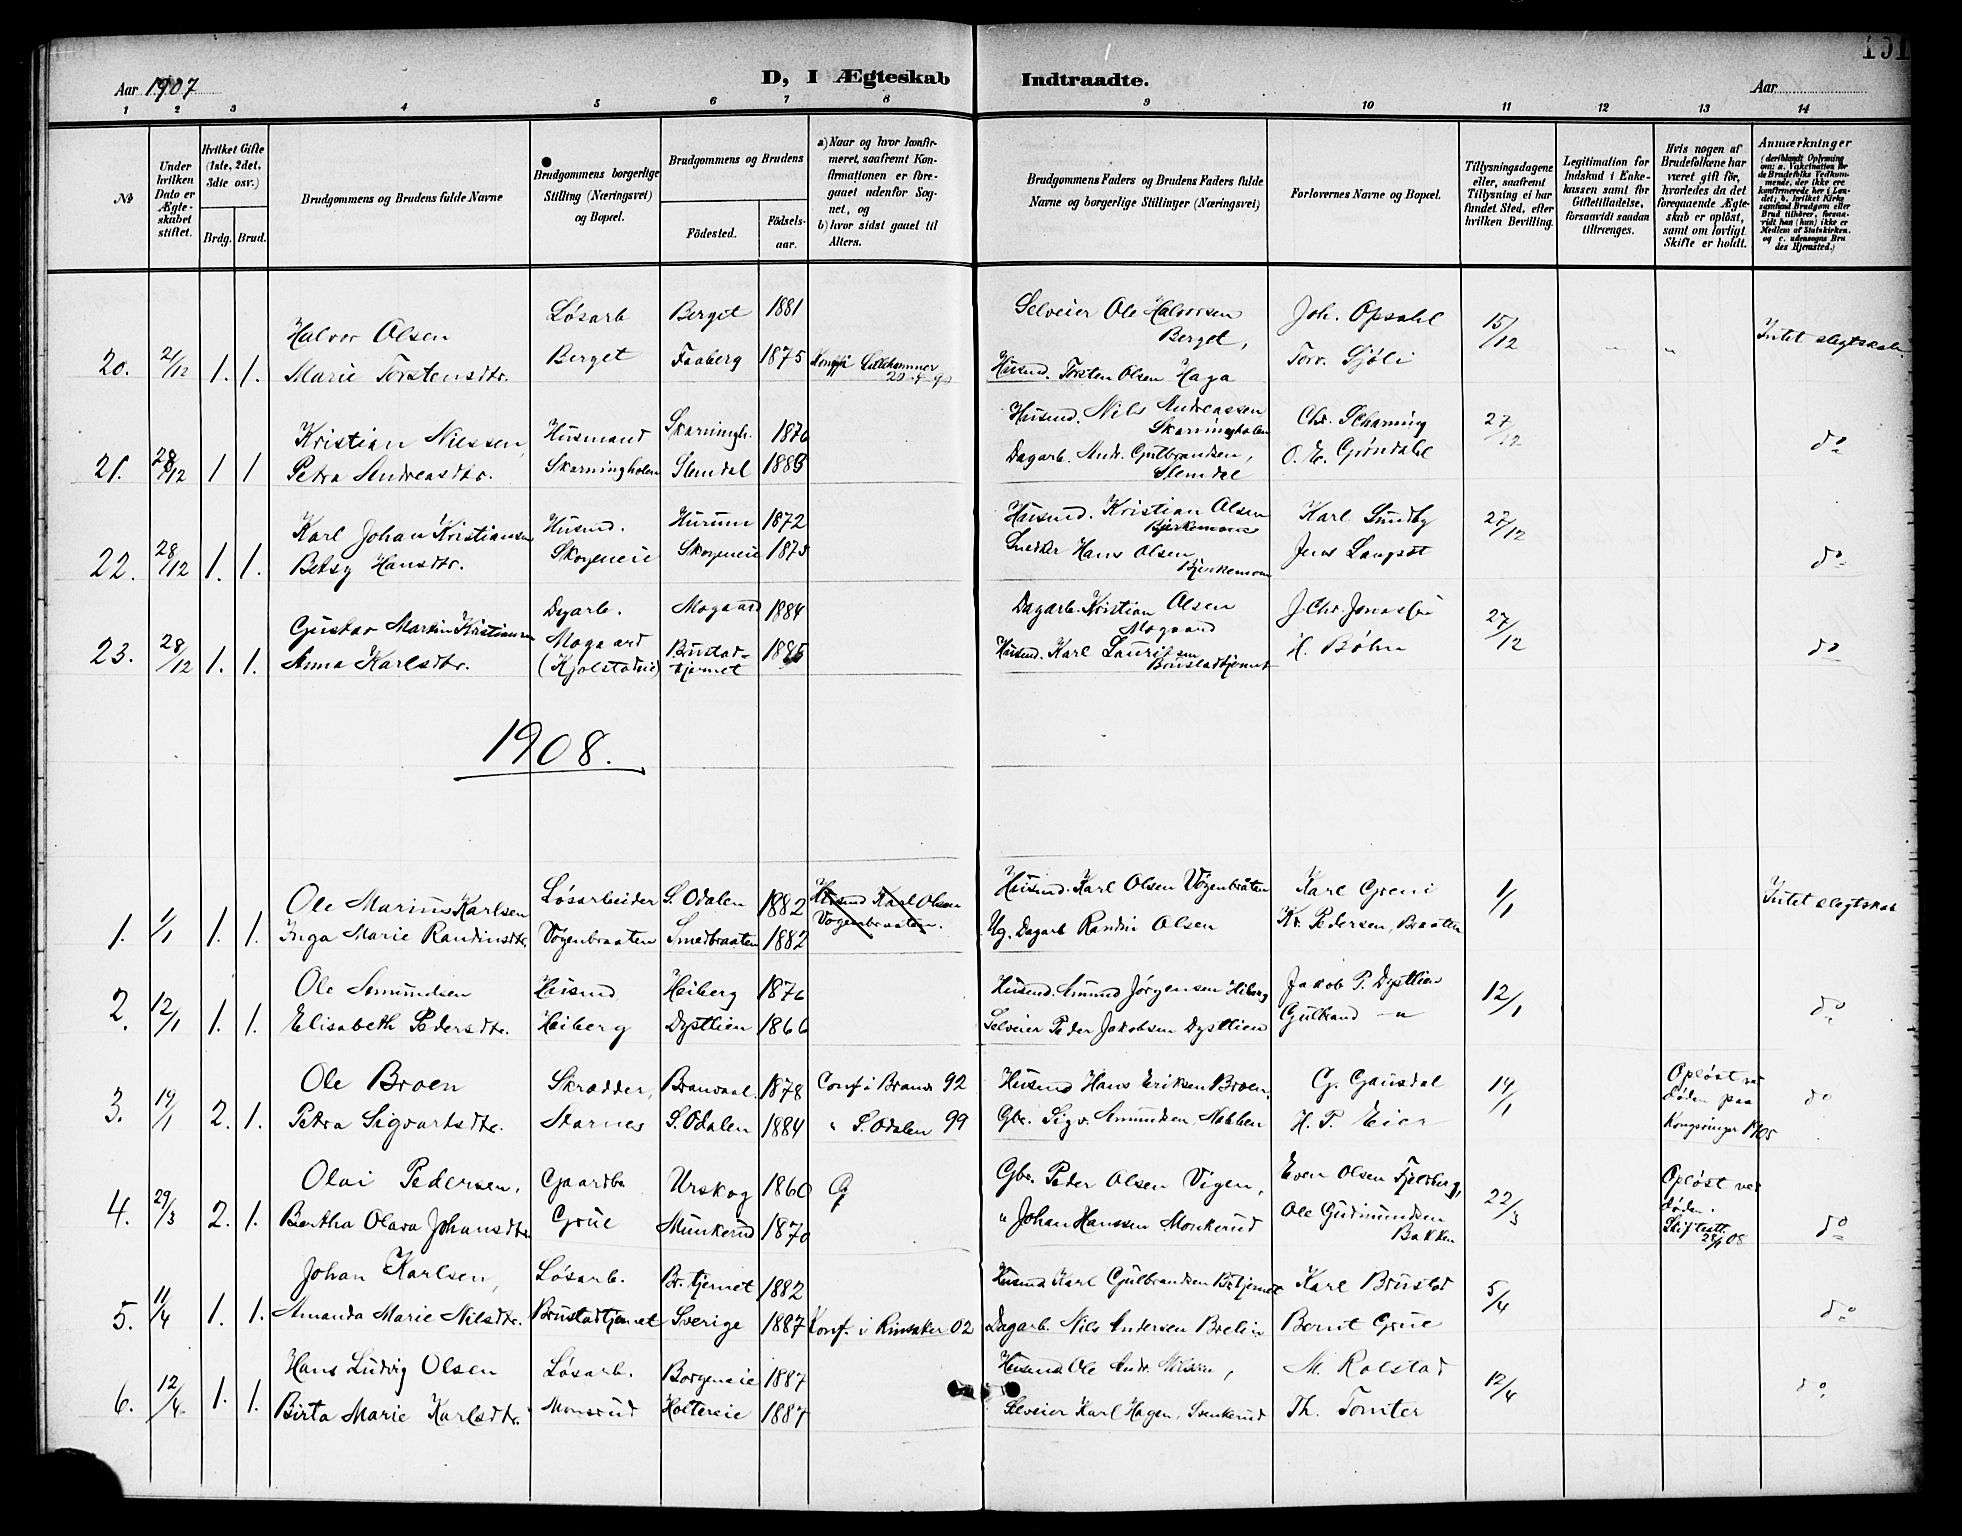 101
Aar 1907
D, I Ægteskab Indtraadte.
Aar
1 2 3 4 5 6 7 8 9 10 11 12 13 14
No
Under hvilken Dato er Ægteskabet stiftet.
Hvilket Gifte (1ste, 2det, 3die osv.)
Brdg. Brud.
Brudgommens og Brudens fulde Navne
Brudgommens borgerlige Stilling (Næringsvei) og Bopæl.
Brudgommens og Brudens
Fødested.
Fødselsaar.
a) Naar og hvor konfirmeret, saafremt Konfirmationen er foregaaet udenfor Sognet, og
b) hvor sidst gaaet til Alters.
Brudgommens Faders og Brudens Faders fulde Navne og borgerlige Stillinger (Næringsvei)
Forlovernes Navne og Bopæl.
Tillysningsdagene eller, saafremt Tillysning ei har fundet Sted, efter hvilken Bevilling.
Legitimation for Indskud i Enkekassen samt for Giftetilladelse, forsaavidt saadan tiltrænges.
Hvis nogen af Brudefolkene har været gift før, hvorledes da det foregaaende Ægteskab er opløst, samt om lovligt Skifte er holdt.
Anmærkninger
(deriblandt Oplysning om: a. Vakcination for de Brudefolks Vedkommende, der ikke ere konfirmerede her i Landet; b. hvilket Kirkesamfund Brudgom eller Brud tilhører, forsaavidt han (hun) ikke er Medlem af Statskirken. og c. udensogns Brudes Hjemsted.)
20. 21/12 1. 1.
Halvor Olsen Løsarb Berget 1881 Selveier Ole Halvorsen Berget, Joh. Opsahl 15/12 Intet slegtskab.
Marie Torstensdtr. Berget Faaberg 1875 Lillehammer Husmd. Torsten Olsen Haga Torv. Sjöli
21. 28/12 1 1
Kristian Nilssen, Husmand Skarningh. 1876 Husmd. Nils Andreassen Skarningholen Chr. Skarning 27/12 do
Petra Andreasdtr. Skarningholen Slemdal 1883 Dagarb. Andr. Gulbrandsen, Slemdal O. E. Gröndahl
22. 28/12 1. 1.
Karl Johan Kristiansen Husmd. Hurum 1872 Husmd. Kristian Olsen Bjerkemoen Karl Sundby 27/12 do
Betsy Hansdtr. Skogeneie Skogeneie 1875 Snedker Hans Olsen Bjerkemoen Jens Langset
23. 28/12 1. 1.
Gustav Martin Kristiansen Dagarb. Mogaard 1884 Dagarb. Kristian Olsen Mogaard J. Chr. Jonassen 27/12 do
Anna Karlsdtr. Mogaard (Kjolstadeie) Bustadtjernet 1885 Husmd. Karl Lauritsen Brustadtjernet H. Böhn
1908.
1. 1/1 1. 1.
Ole Marius Karlsen Løsarbeider S. Odalen 1882 Husmd Karl Olsen Vogenbraaten. Husmd. Karl Olsen Vogenbråten Karl Greni 1/1 Intet slegtskab
Inga Marie Randinsdtr. Vogenbraaten Smedbraaten 1882 Ug. Dagarb Randi Olsen Kr. Pedersen, Braaten
2. 12/1 1. 1.
Ole Amundsen Husmd Heiberg 1876 Husmd. Amund Jörgensen Hiberg Jakob P. Dystlien 12/1 do
Elisabeth Pedersdtr. Heiberg Dystlien 1866 Selveier Peder Jakobsen Dystlien Gulbrand — "
3. 19/1 2. 1.
Ole Broen Skrædder, Branvaal 1878 Conf i Branv 92 Husmd Hans Eriksen Broen. G. Gausdal 19/1 Opløst ved døden paa Kongsvinger 1905 do
Petra Sigvartsdtr. Starnes S. Odalen 1884 " S. Odalen 99 Gbr. Sigv. Amundsen, Nabben H. P. Eier
4. 29/3 2. 1.
Olai Pedersen, Gaardbr Urskog 1860 Gbr. Peder Olsen Vigen, Even Olsen Fjeldberg, 22/3 Opløst ved døden. Skifteatt. 28/1 08 do
Bertha Olava Johansdtr Grue Munkerud 1870 " Johan Hanssen Monkerud Ole Gudmundsen Bakken
5. 11/4 1. 1.
Johan Karlsen, Løsarb. Br.tjernet 1882 Husmd Karl Gulbrandsen Brtjernet Karl Brustad 5/4 do
Amanda Marie Nilsdtr. Brustadtjernet Sverige 1887 Konf. i Ringsaker 02 Dagarb. Nils Andersen Brelin Bernt Grue
6. 12/4 1. 1.
Hans Ludvig Olsen Løsarb. Borgeneie 1887 Husmd Ole Andr. Nilsen, M. Rolstad 12/4 do.
Birta Marie Karlsdtr. Monsrud Holtereie 1887 Selveier Karl Hagen, Svenkerud Th. Tomter